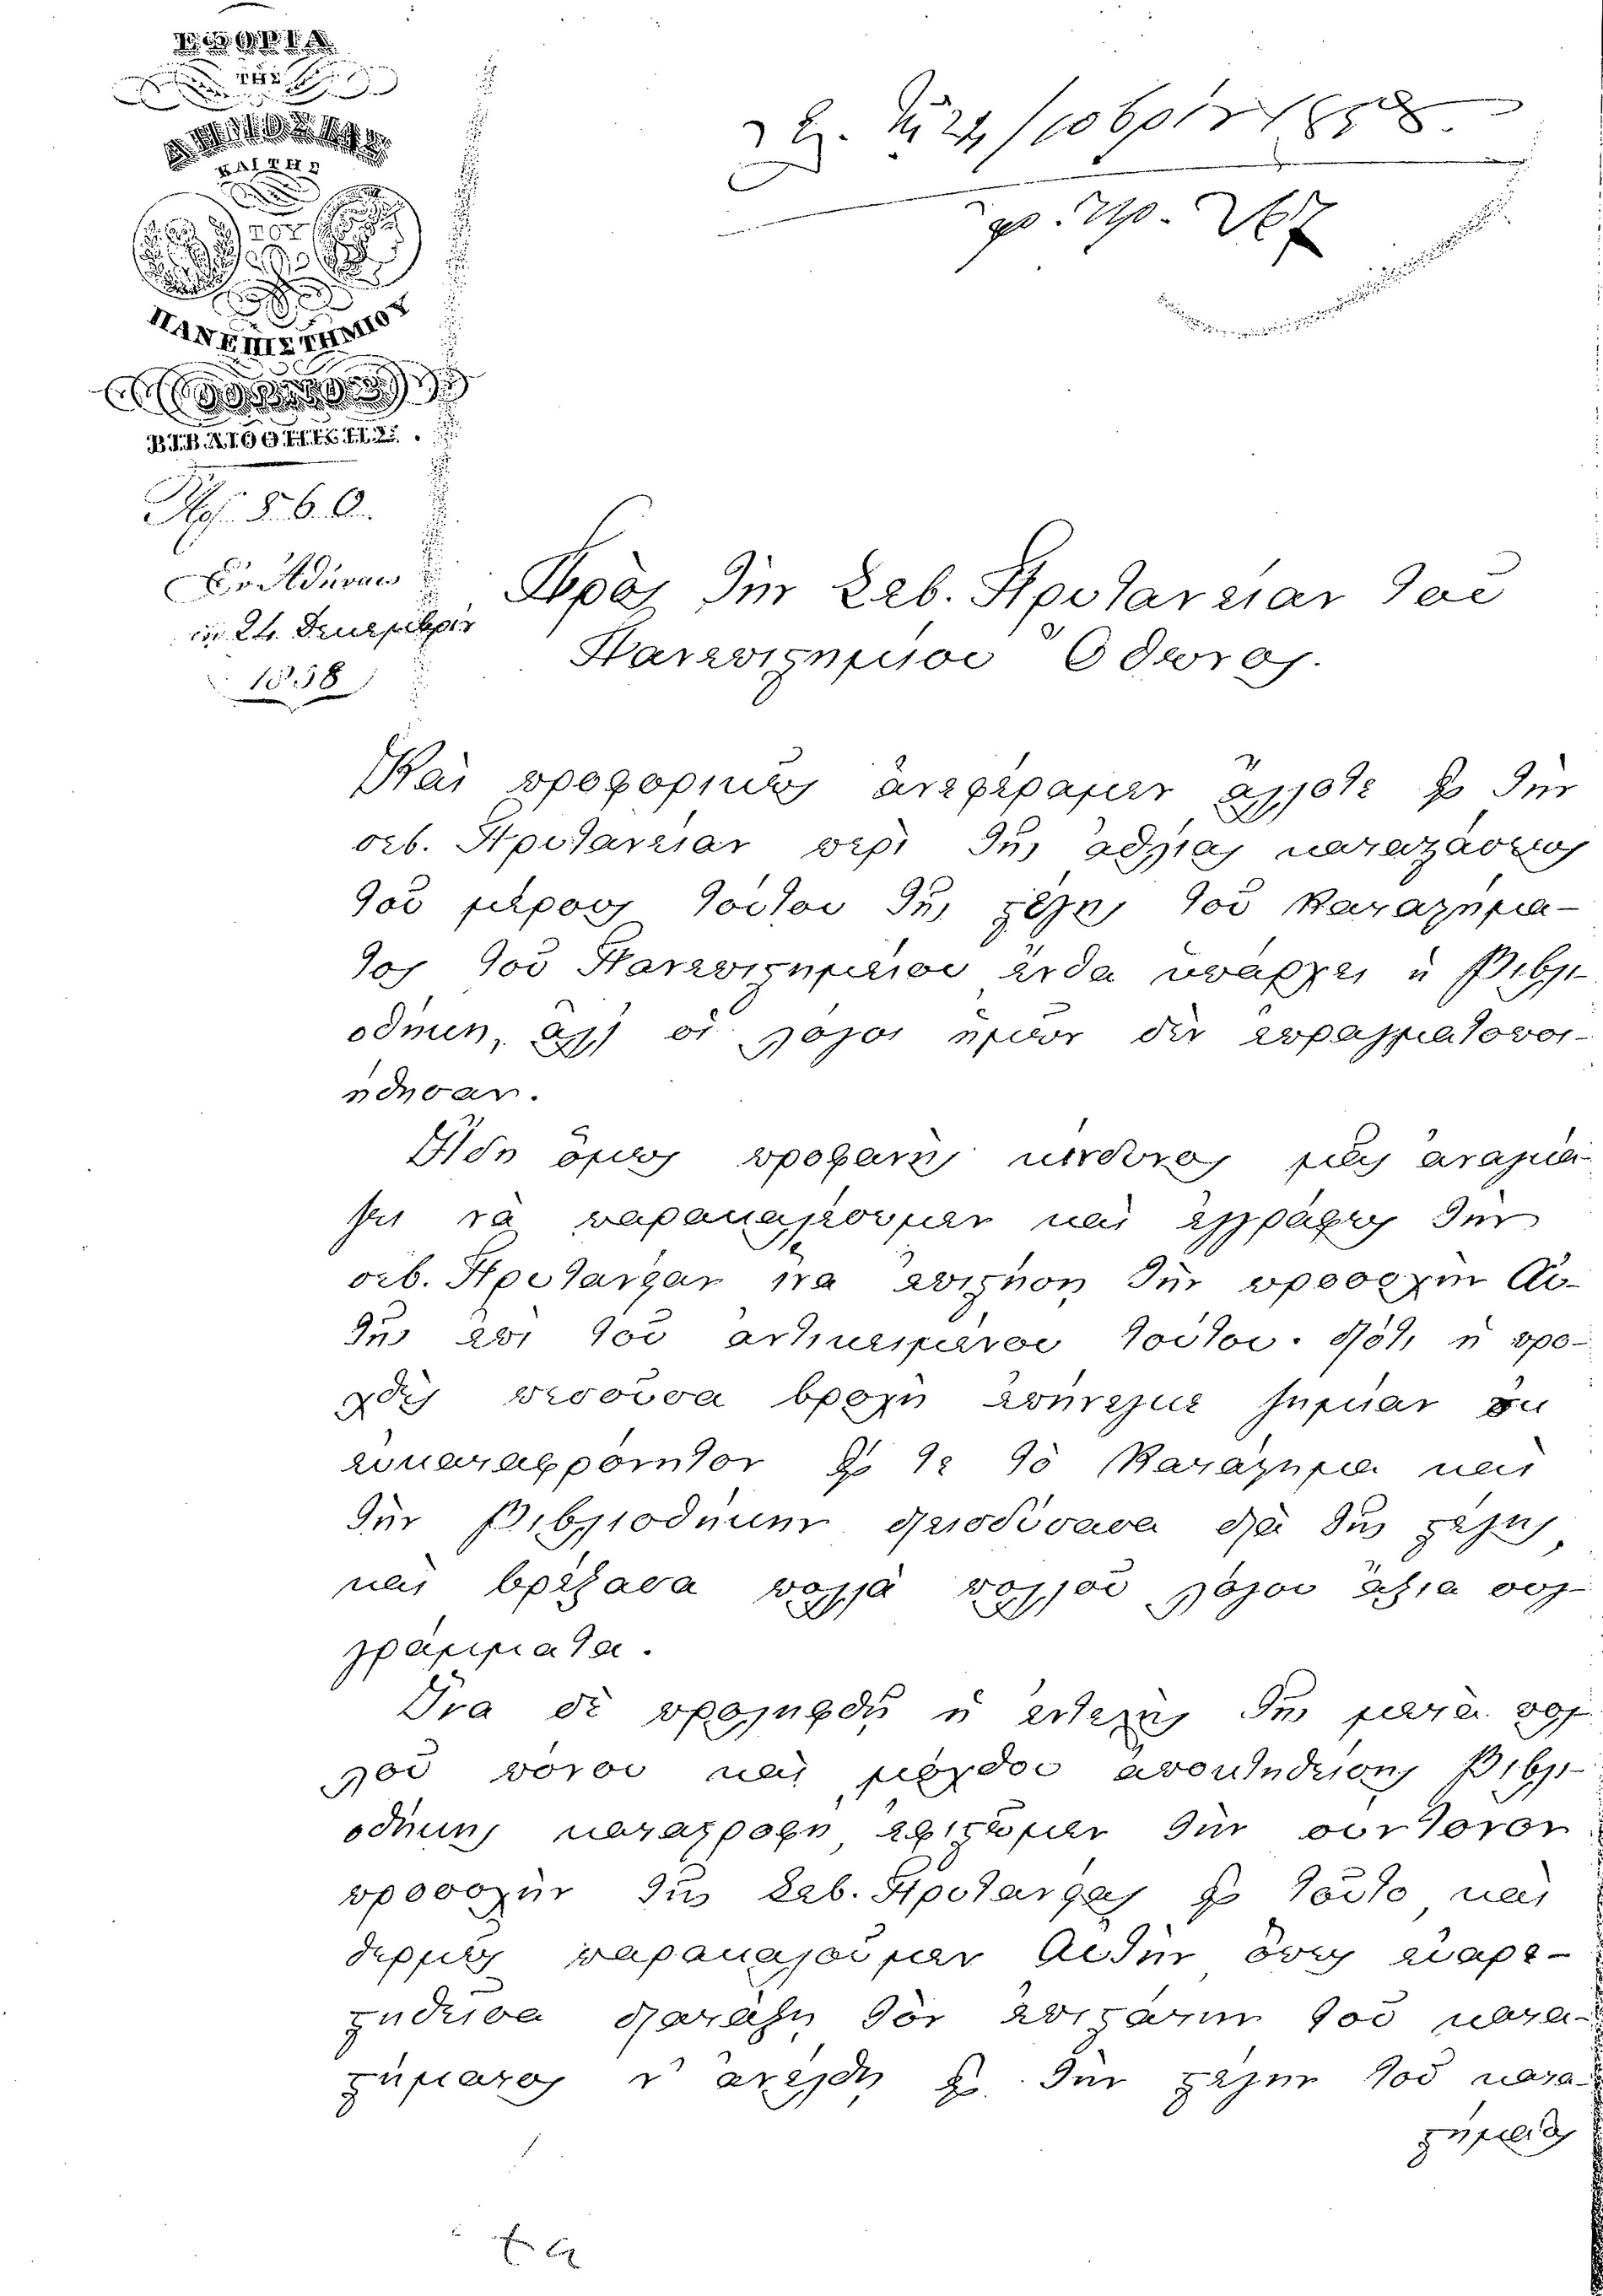 ΕΦΟΡΙΑ
ΤΗΣ
ΔΗΜΟΣΙΑΣ
ΚΑΙ ΤΗΣ
ΤΟΥ
ΠΑΝΕΠΙΣΤΗΜΙΟΥ
ΒΙΒΛΙΟΘΗΚΗΣ.
24 1858.
Αρ. 560.
Ἐν Ἀθήναις
τῇ 24 Δεκεμβρίου
1858
Πρὸς τὴν Σεβ. Πρυτανείαν τοῦ
Πανεπιστημίου Ὄθωνος.
Καὶ προφορικῶς ἀνεφέραμεν ἄλλοτε εἰς τὴν
σεβ. Πρυτανείαν περὶ τῆς ἀθλίας καταστάσεως
τοῦ μέρους τούτου τῆς στέγης τοῦ Καταστήμα-
τος τοῦ Πανεπιστημίου ἔνθα ὑπάρχει ἡ Βιβλι-
οθήκη, ἀλλ' οἱ λόγοι ἡμῶν δὲν ἐπραγματοποι-
ήθησαν.
Ἤδη ὅμως προφανὴς κίνδυνος μᾶς ἀναγκά-
ζει νὰ παρακαλέσωμεν καὶ ἐγγράφως τὴν
σεβ. Πρυτανείαν ἵνα ἐπιστήσῃ τὴν προσοχὴν Αὐ-
τῆς ἐπὶ τοῦ ἀντικειμένου τούτου. διότι ἡ προ-
χθὲς πεσοῦσα βροχὴ ἐπήνεγκε ζημίαν οὐκ
εὐκαταφρόνητον εἰς τε τὸ Κατάστημα καὶ
τὴν Βιβλιοθήκην εἰσδύσασα διὰ τῆς στέγης,
καὶ βρέξασα πολλὰ πολλοῦ λόγου ἄξια συγ-
γράμματα.
Ἵνα δὲ προληφθῇ ἡ ἐντελὴς τῆς μετὰ πολ-
λοῦ πόνου καὶ μόχθου ἀποκτηθείσης Βιβλι-
οθήκης καταστροφή, ἐφιστῶμεν τὴν σύντονον
προσοχὴν τῆς Σεβ. Πρυτανείας εἰς τοῦτο, καὶ
θερμῶς παρακαλοῦμεν Αὐτὴν ὅπως εὐαρε-
στηθεῖσα διατάξῃ τὸν ἐπιστάτην τοῦ κατα-
στήματος ν' ἀνέλθῃ εἰς τὴν στέγην τοῦ κατα-
στήματος